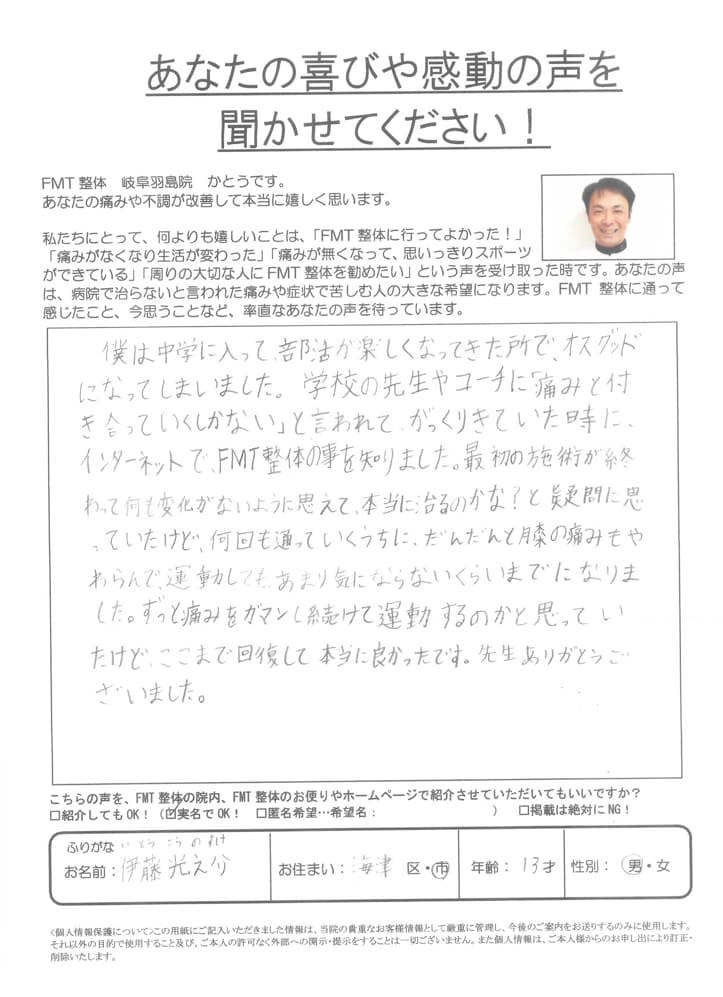 あなたの喜びや感動の声を
聞かせてください！
FMT 整体　岐阜羽島院　かとうです。
あなたの痛みや不調が改善して本当に嬉しく思います。
私たちにとって、何よりも嬉しいことは、「FMT 整体に行ってよかった！」
「痛みがなくなり生活が変わった」「痛みが無くなって、思いっきりスポーツ
ができている」「周りの大切な人に FMT 整体を勧めたい」という声を受け取った時です。あなたの声
は、病院で治らないと言われた痛みや症状で苦しむ人の大きな希望になります。FMT 整体に通って
感じたこと、今思うことなど、率直なあなたの声を待っています。
僕は中学に入って、部活が楽しくなってきた所で、オスグッド
になってしまいました。学校の先生やコーチに「痛みと付
き合っていくしかない」と言われて、がっくりきていた時に、
インターネットで、FMT整体の事を知りました。最初の施術が終
わって何も変化がないように思えて、本当に治るのかな？と疑問に思
っていたけど、何回も通っていくうちに、だんだんと膝の痛みもや
わらんで、運動しても、あまり気にならないくらいまでになりま
した。ずっと痛みをガマンし続けて運動するのかと思ってい
たけど、ここまで回復して本当に良かったです。先生ありがとうご
ざいました。
こちらの声を、FMT 整体の院内、FMT 整体のお便りやホームページで紹介させていただいてもいいですか？
□紹介してもOK！（☑実名でOK！　□匿名希望…希望名：　　　　　　　　）　□掲載は絶対にNG！
ふりがな いとう こうのすけ
お名前：伊藤光之介
お住まい：海津 区・市
年齢：13才
性別：男・女
<個人情報保護について>この用紙にご記入いただきました情報は、当院の貴重なお客様情報として厳重に管理し、今後のご案内をお送りするのみに使用します。
それ以外の目的で使用すること及び、ご本人の許可なく外部への開示・提示をすることは一切ございません。また個人情報は、ご本人様からのお申し出により訂正・
削除いたします。